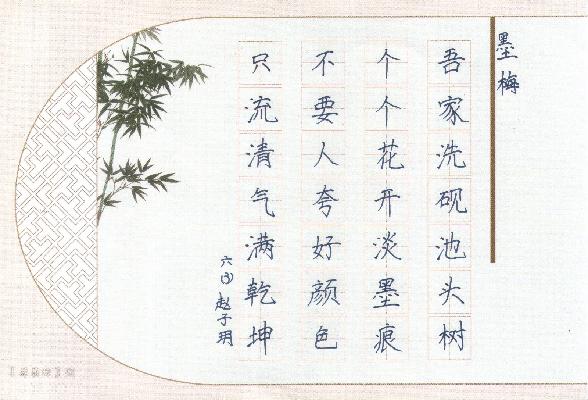 墨梅
吾家洗砚池头树
个个花开淡墨痕
不要人夸好颜色
只流清气满乾坤
赵子玥